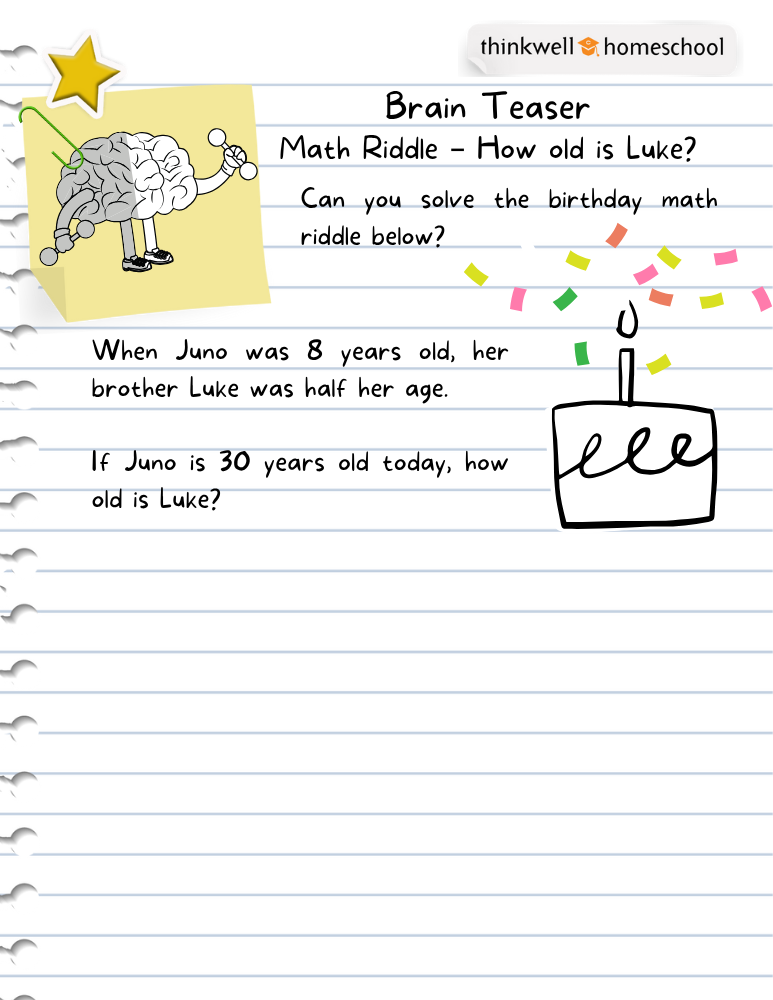 thinkwell homeschool
Brain Teaser
Math Riddle - How old is Luke?
Can you solve the birthday math
riddle below?
When Juno was 8 years old, her
brother Luke was half her age.
If Juno is 30 years old today, how
old is Luke?